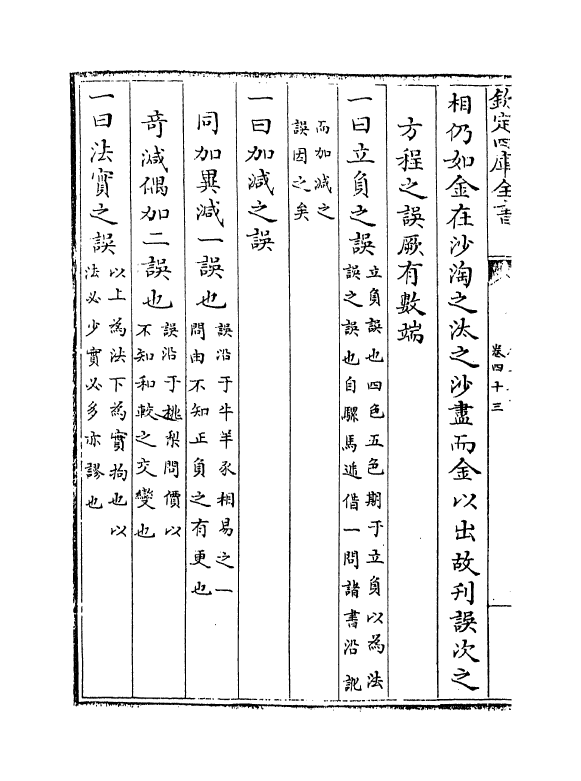 欽定四庫全書
卷四十三
相仍如金在沙淘之汰之沙盡而金以出故刊誤次之
方程之誤厥有數端
一曰立負之誤
立負誤也四色五色期于立負以為法
誤之誤也自騾馬遞借一問諸書沿訛
而加減之
誤因之矣
一曰加減之誤
同加異減一誤也
誤沿于牛羊豕相易之一
問由不知正負之有更也
奇減偶加二誤也
誤沿于桃梨問價以
不知和較之交變也
一曰法實之誤
以上為法下為實拘也以
法必少實必多亦謬也